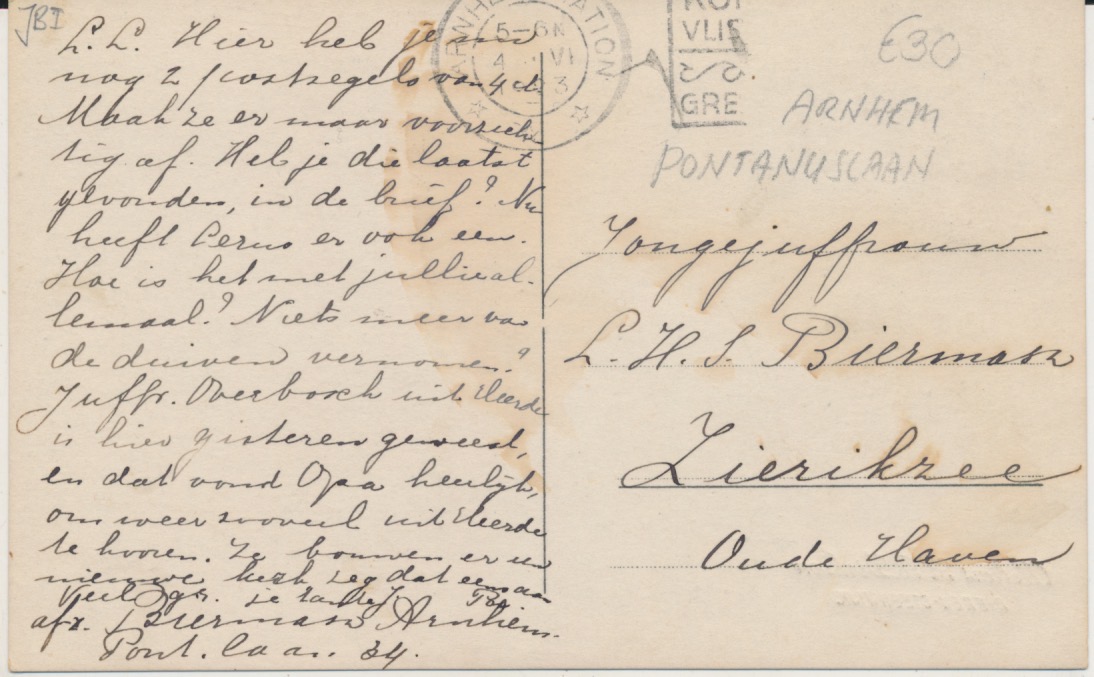 JBI
L. L. Hier heb je nu
nog 2 postzegels van 4 ct.
Maak ze er maar voorzich
tig af. Heb je die laatst
gevonden, in de brief? Nu
heeft er ook een.
Hoe is het met jullie al-
lemaal? Niets meer van
de duiven vernomen?
Juffr. Overbosch uit Heerde
is hier gisteren geweest,
en dat vond Opa heerlijk,
om weer zooveel uit Heerde
te hooren. Ze bouwen er een
nieuwe kerk, zeg dat eens aan
Veel gr. je tante J.
afz. Biermasz Arnhem.
Pont. laan. 34.
ARNHEM STATION
5-6N
4 VI
3
VLIE
GRE
€30
ARNHEM
PONTANUSLAAN
Jongejuffrouw
L. H. S. Biermasz
Zierikzee
Oude Haven